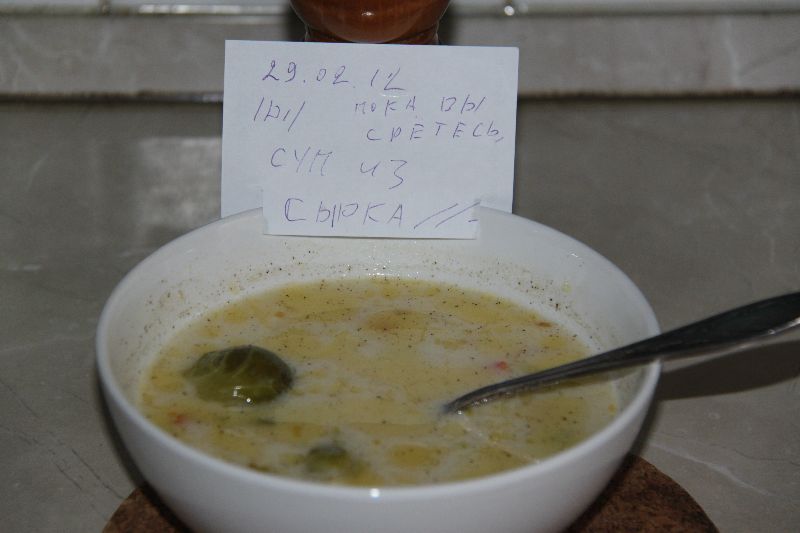 29.02.12
/ЫІ/ ПОКА ВЫ
СРЕТЕСЬ,
СУП ИЗ
СЫРКА //-